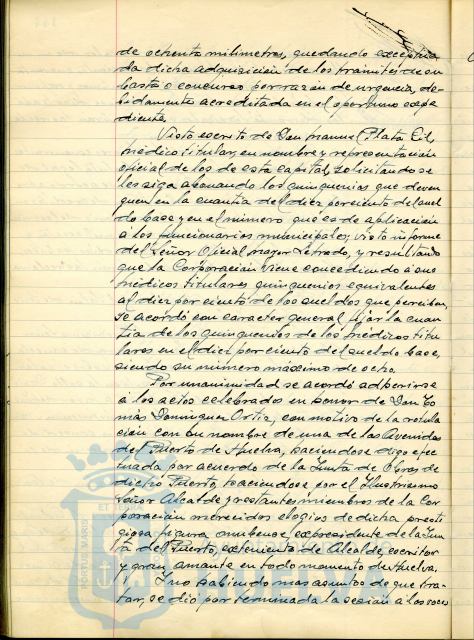 de ochenta milimetros, quedando exceptua
da dicha adquisición de los tramites de su
basta o concurso por razón de urgencia, de
bidamente acreditada en el oportuno expe
diente.
Visto escrito de Don Manuel Plata Gil,
médico titular, en nombre y representación
oficial de los de esta capital, solicitando se
les siga abonando los quinquenios que deven
guen en la cuantia del diez por ciento del suel
do base y en el número que es de aplicación
a los funcionarios municipales; visto informe
del Señor Oficial mayor Letrado, y resultando
que la Corporación viene concediendo a sus
médicos titulares quinquenios equivalentes
al diez por ciento de los sueldos que perciben,
se acordó con caracter general, fijar la cuan
tia de los quinquenios de los médicos titu
lares en el diez por ciento del sueldo base,
siendo su número máximo de ocho.
Por unanimidad se acordó adherirse
a los actos celebrado en honor de Don To
más Dominguez Ortiz, con motivo de la rotula
ción con su nombre de una de las Avenidas
del Puerto de Huelva, haciendose digo efec
tuada por acuerdo de la Junta de Obras de
dicho Puerto, haciendose por el Ilustrisimo
Señor Alcalde y restantes miembros de la Cor
poración merecidos elogios de dicha presti
giosa figura onubense, expresidente de la Jun
ta del Puerto, exteniente de Alcalde, escritor
y gran amante en todo momento de Huelva.
Y no habiendo mas asuntos de que tra
tar, se dió por terminada la sesión a las voces
PORTUS MARIS
ET TERRÆ